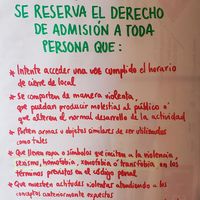 SE RESERVA EL DERECHO
DE ADMISIÓN A TODA
PERSONA QUE:
* Intente acceder una vez cumplido el horario
de cierre de local
* Se comporten de manera violenta,
que puedan producir molestias al público o
que alteren el normal desarrollo de la actividad
* Porten armas o objetos similares de ser utilizados
como tales
* Que lleven ropa o símbolos que inciten a la violencia,
sexismo, homofobia, xenofobia o transfobia en los
términos previstos en el código penal
* Que muestren actitudes violentas atendiendo a los
conceptos anteriormente expuestos